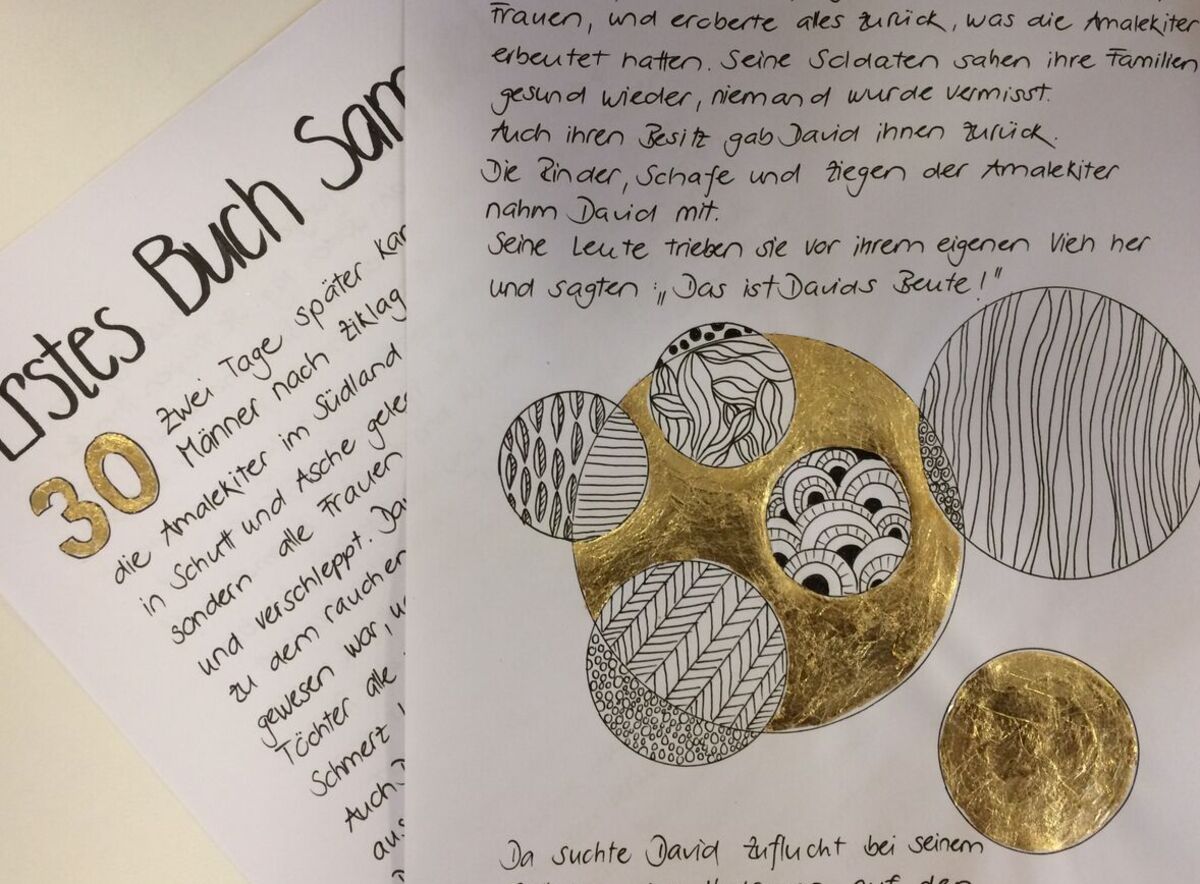 Erstes Buch Sam
30
Zwei Tage später kam
Männer nach Ziklag
die Amalekiter im Südland
in Schutt und Asche gele
sondern alle Frauen
und verschleppt. Da
zu dem rauchen
gewesen war, u
Töchter alle
Schmerz
Auch
aus
Frauen, und eroberte alles zurück, was die Amalekiter
erbeutet hatten. Seine Soldaten sahen ihre Familien
gesund wieder, niemand wurde vermisst.
Auch ihren Besitz gab David ihnen zurück.
Die Rinder, Schafe und Ziegen der Amalekiter
nahm David mit.
Seine Leute trieben sie vor ihrem eigenen Vieh her
und sagten: „Das ist Davids Beute!"
Da suchte David Zuflucht bei seinem
auf den